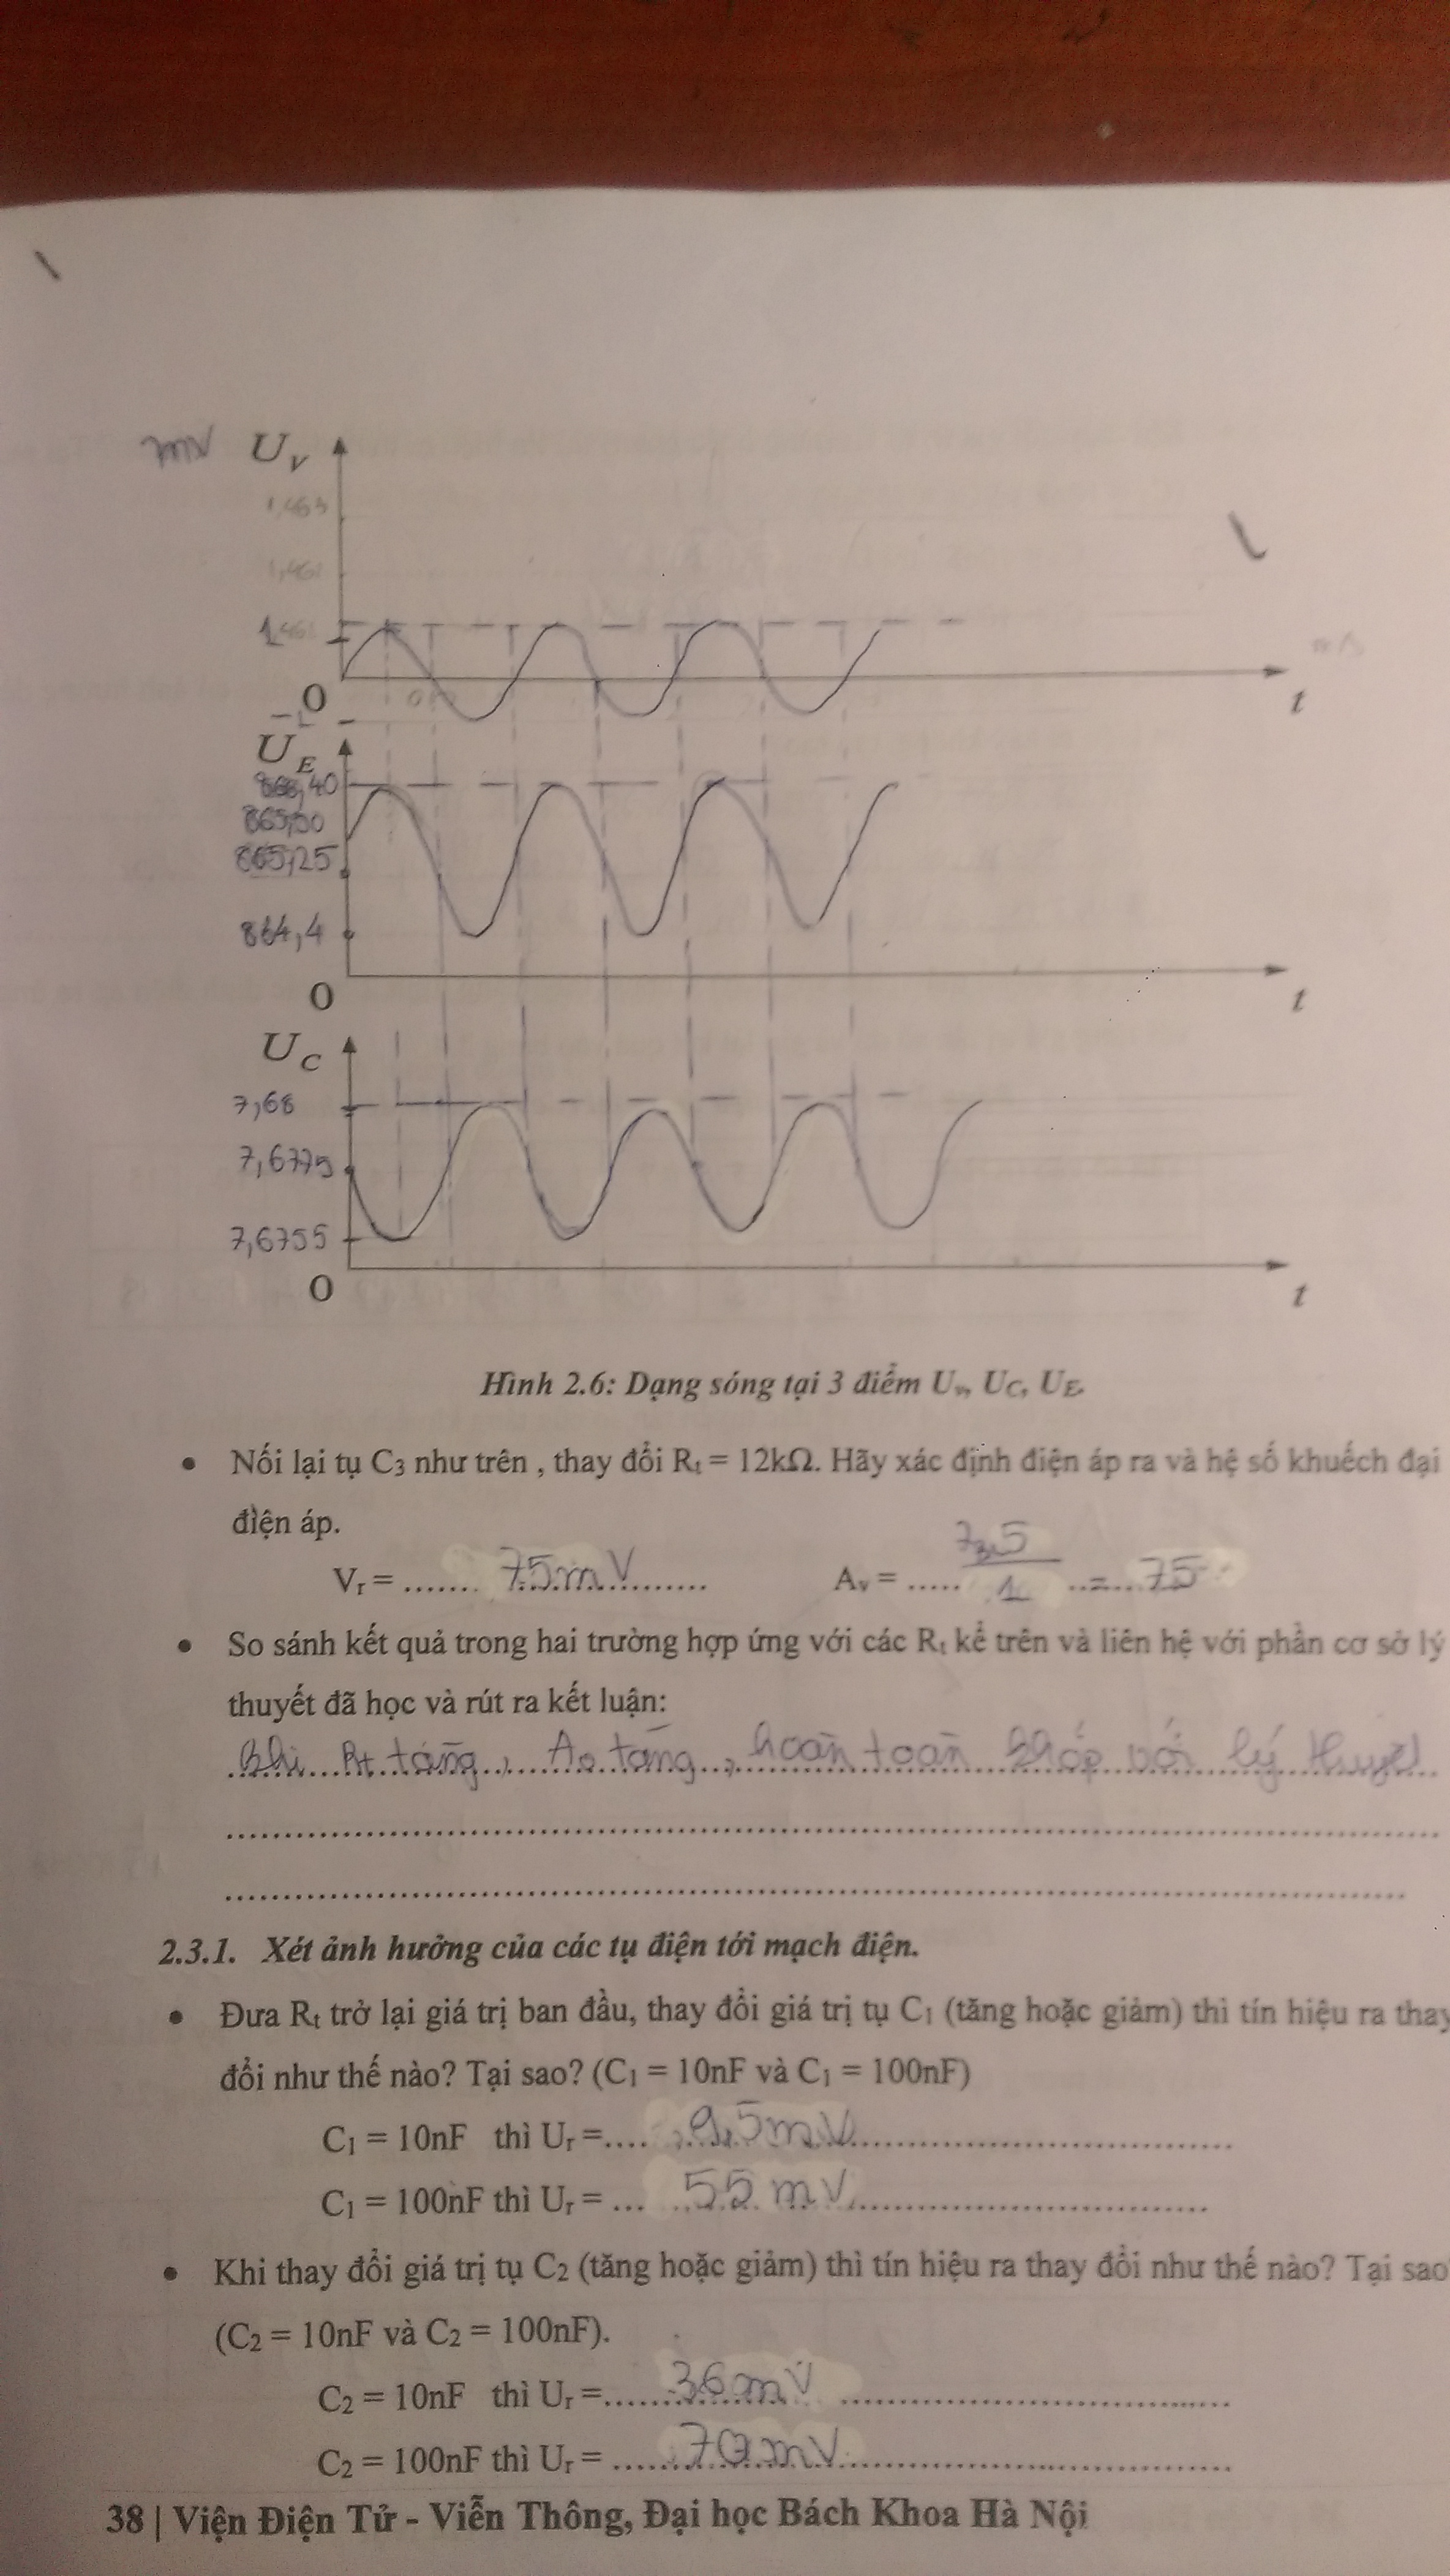 mV U_V
1,463
1,461
1
O
-1
t
U_E
866,40
865,50
865,25
864,4
O
t
U_C
7,68
7,6775
7,6755
O
t
Hình 2.6: Dạng sóng tại 3 điểm Uv, UC, UE.
• Nối lại tụ C3 như trên , thay đổi Rt = 12kΩ. Hãy xác định điện áp ra và hệ số khuếch đại
điện áp.
Vr = ....... 75mV ....... Av = ..... 75 / 1 ..=.... 75
• So sánh kết quả trong hai trường hợp ứng với các Rt kể trên và liên hệ với phần cơ sở lý
thuyết đã học và rút ra kết luận:
Khi Rt tăng, Ao tăng, hoàn toàn khớp với lý thuyết
2.3.1. Xét ảnh hưởng của các tụ điện tới mạch điện.
• Đưa Rt trở lại giá trị ban đầu, thay đổi giá trị tụ C1 (tăng hoặc giảm) thì tín hiệu ra thay
đổi như thế nào? Tại sao? (C1 = 10nF và C1 = 100nF)
C1 = 10nF thì Ur =.... 9,5mV
C1 = 100nF thì Ur = ... 55 mV
• Khi thay đổi giá trị tụ C2 (tăng hoặc giảm) thì tín hiệu ra thay đổi như thế nào? Tại sao
(C2 = 10nF và C2 = 100nF).
C2 = 10nF thì Ur =...... 36mV
C2 = 100nF thì Ur = ..... 70mV
38 | Viện Điện Tử - Viễn Thông, Đại học Bách Khoa Hà Nội